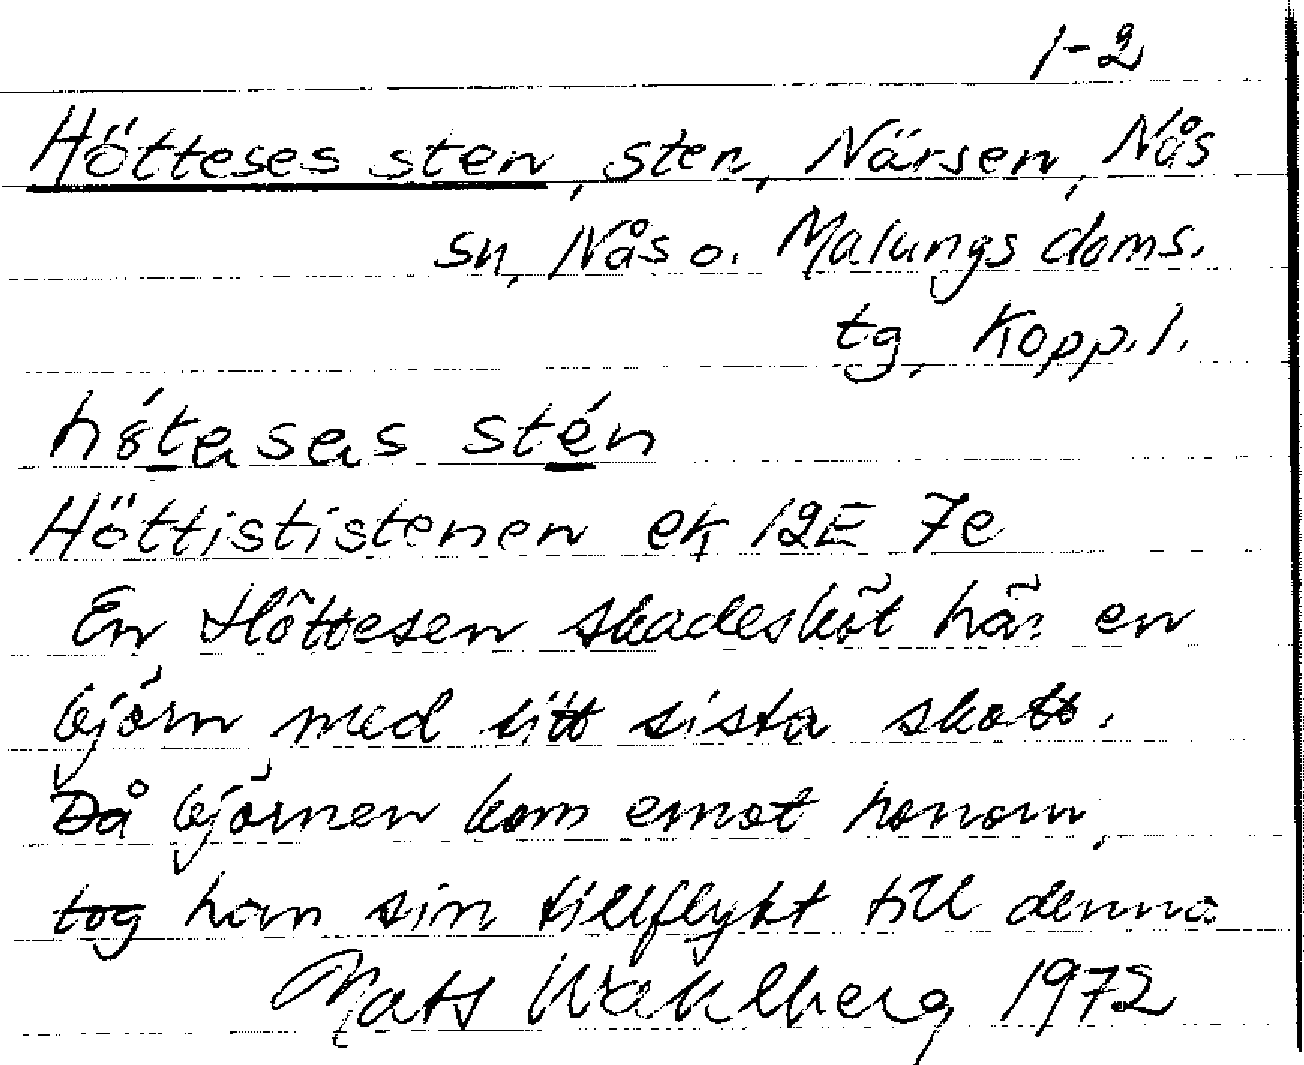 1-2
Hötteses sten, sten, Närsen, Nås
sn, Nås o. Malungs doms.
tg, Kopp.l.
hö́tasas stén
Höttististenen ek 12E 7e
En Höttesen skadesköt här en
björn med sitt sista skott.
Då björnen kom emot honom,
tog han sin tillflykt till denna
Mats Wahlberg 1972